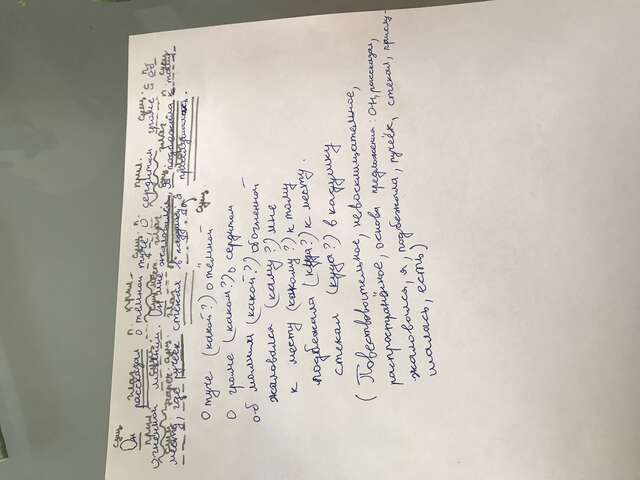 сущ. глаг. п. прил. сущ. п. прил. сущ. с п.
Он рассказал о тёмной туче, о сердитом громе и об
прил. сущ.
огненной молнии. Он мне жаловался, я подбежала к тому
месту, где ручеёк стекал в кадушку и прислушалась.
сущ
О туче (какой?) о тёмной
О громе (каком?) о сердитом
о-б молнии (какой?) об огненной
жаловался (кому?) мне
к месту (какому?) к тому
подбежала (куда?) к месту.
стекал (куда?) в кадушку
(Повествовательное, невосклицательное,
распространённое, основа предложения: он, рассказал,
жаловался, я, подбежала, ручеёк, стекал, прислу-
шалась, есть)